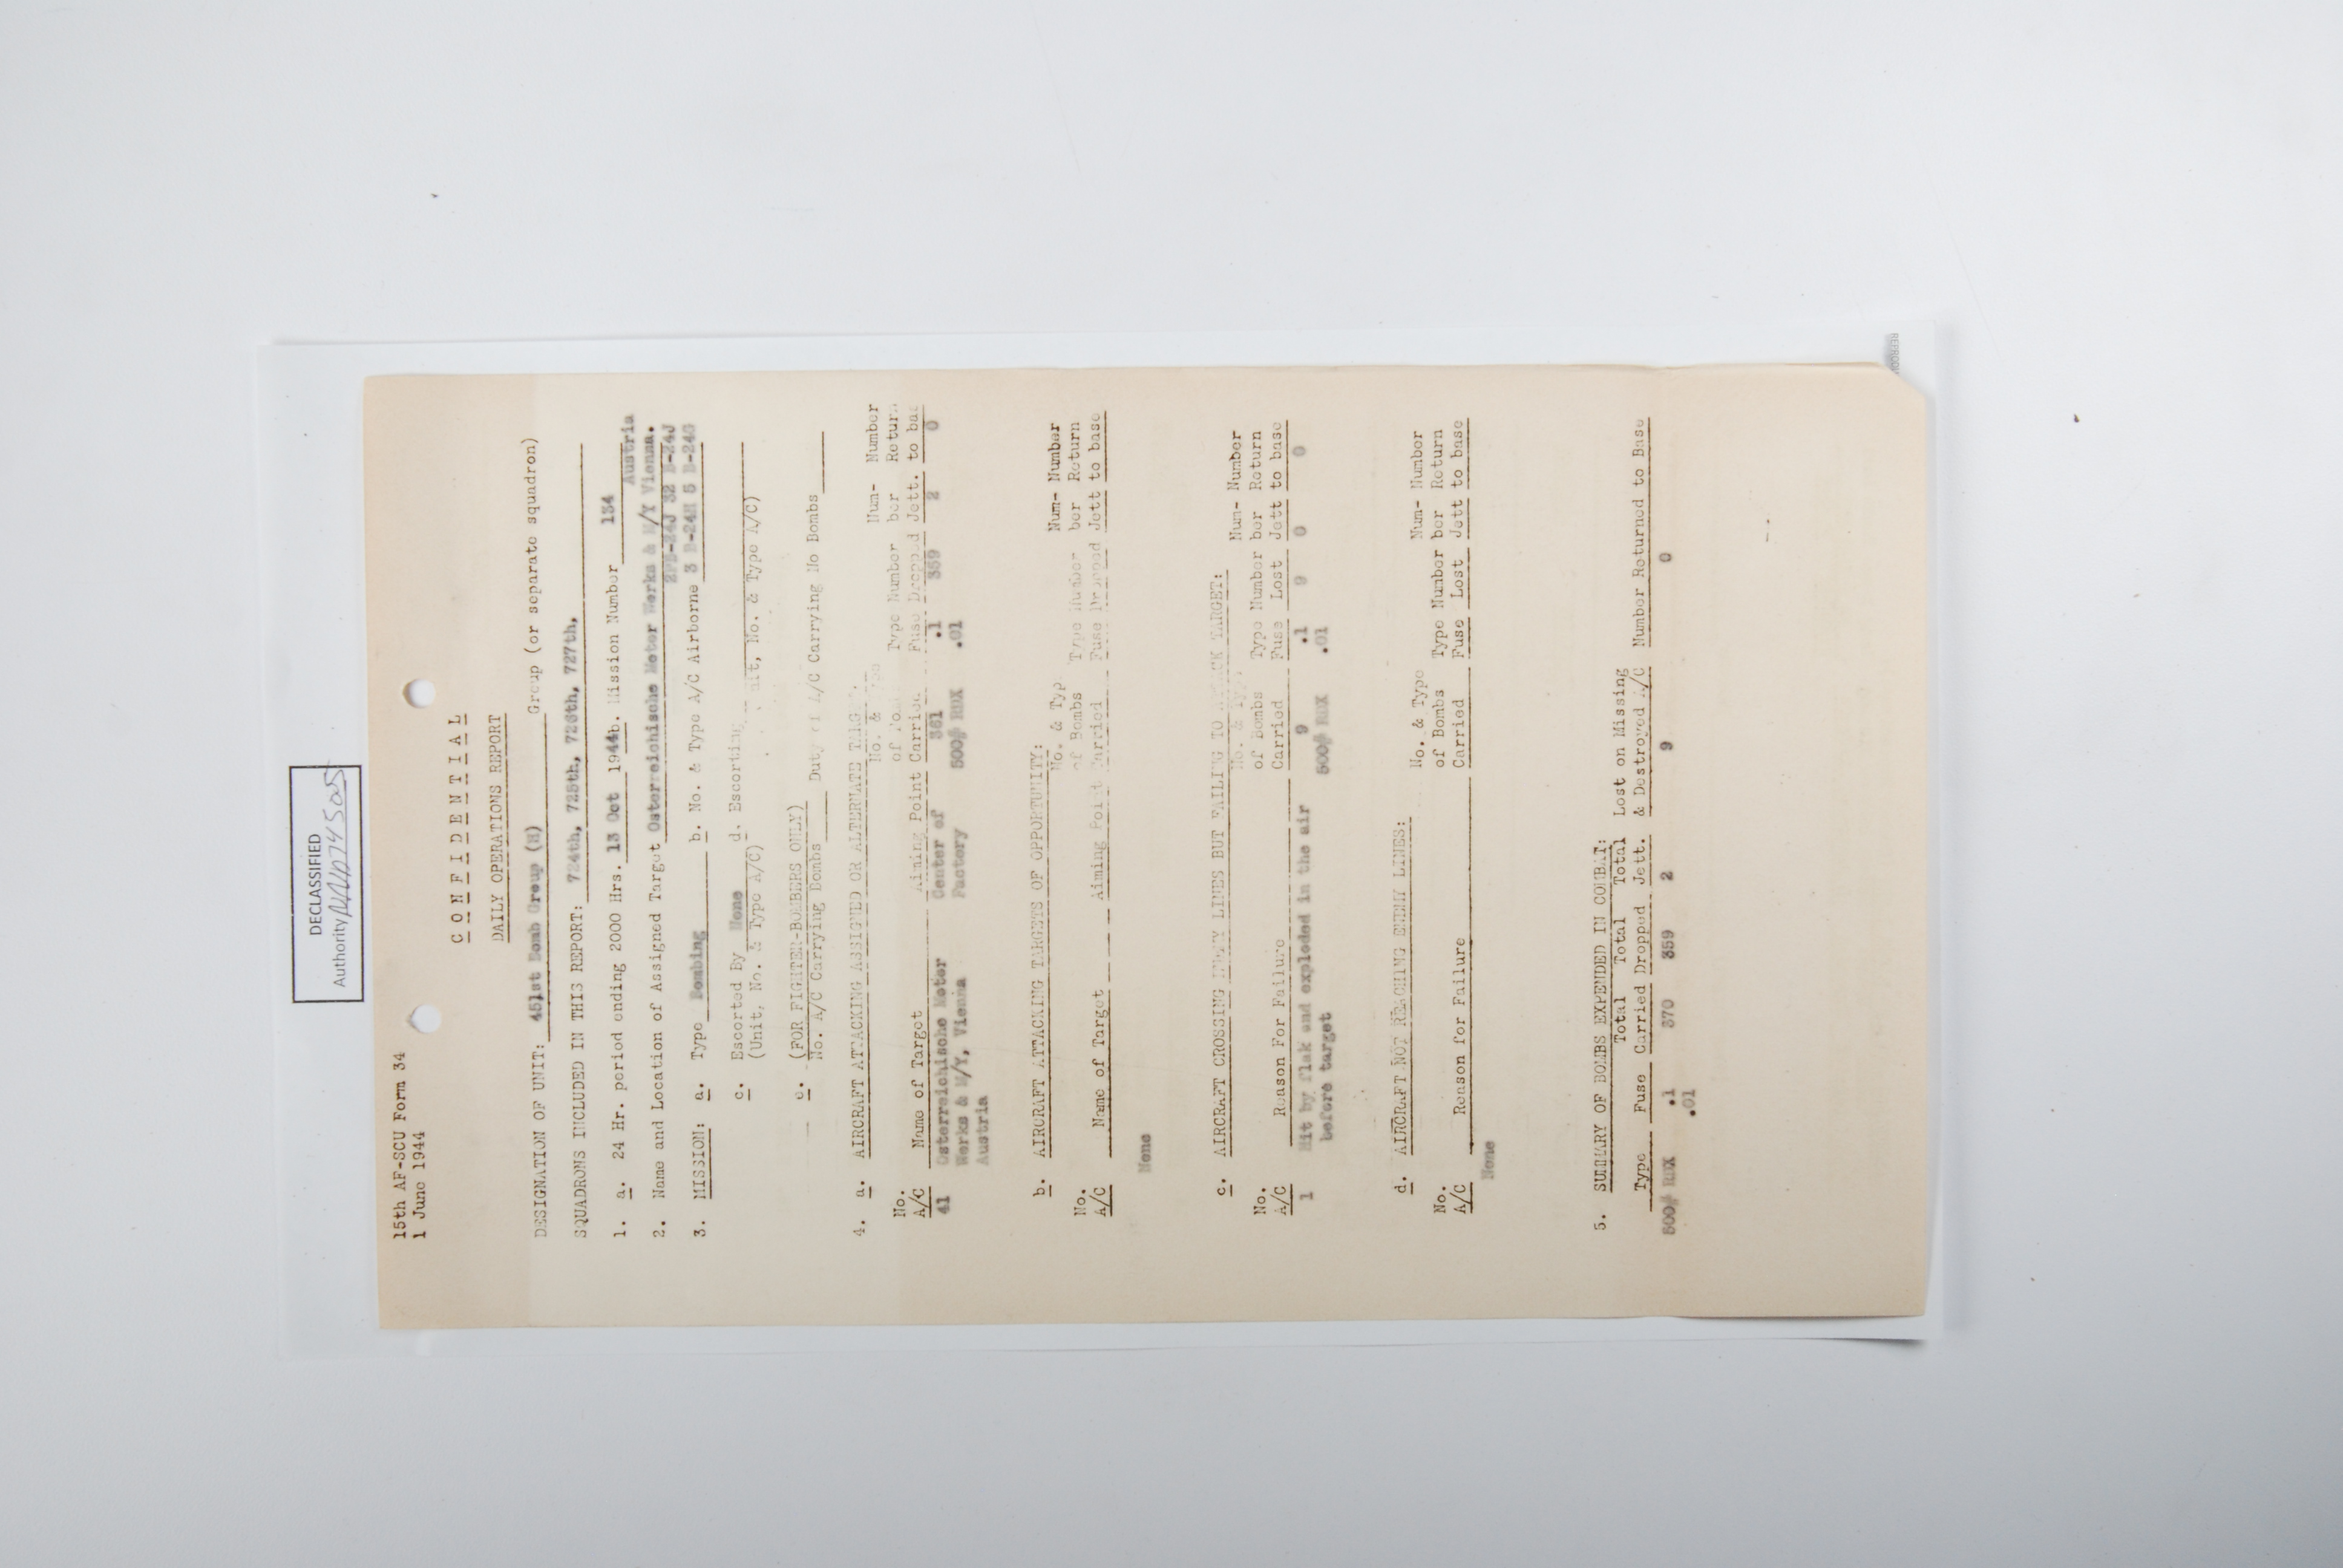 DECLASSIFIED
Authority NND 745005
15th AF-SCU Form 34
1 June 1944
C O N F I D E N T I A L
DAILY OPERATIONS REPORT
DESIGNATION OF UNIT: 451st Bomb Group (H) Group (or separate squadron)
SQUADRONS INCLUDED IN THIS REPORT: 724th, 725th, 726th, 727th,
1. a. 24 Hr. period ending 2000 Hrs. 13 Oct 1944 b. Mission Number 134
Austria
2. Name and Location of Assigned Target Osterreichische Motor Werks & M/Y Vienna.
32 B-24J
3. MISSION: a. Type Bombing b. No. & Type A/C Airborne 3 B-24H 5 B-24G
c. Escorted By None d. Escorting
(Unit, No. & Type A/C) Unit, No. & Type A/C)
e. (FOR FIGHTER-BOMBERS ONLY)
No. A/C Carrying Bombs Duty of A/C Carrying No Bombs
4. a. AIRCRAFT ATTACKING ASSIGNED OR ALTERNATE TARGET.
No. & Type Num- Number
No. of Bombs Type Number ber Return
A/C Name of Target Aiming Point Carried Fuse Dropped Jett. to base
41 Osterreichische Motor Center of 361 .1 359 2 0
Werks & M/Y, Vienna Factory 500# RDX .01
Austria
b. AIRCRAFT ATTACKING TARGETS OF OPPORTUNITY:
No. & Typ Num- Number
No. of Bombs Type Number ber Return
A/C Name of Target Aiming Point Carried Fuse Dropped Jett to base
None
c. AIRCRAFT CROSSING ENEMY LINES BUT FAILING TO ATTACK TARGET:
No. & Type Num- Number
No. of Bombs Type Number ber Return
A/C Reason For Failure Carried Fuse Lost Jett to base
1 Hit by flak and exploded in the air 9 .1 9 0 0
before target 500# RDX .01
d. AIRCRAFT NOT REACHING ENEMY LINES:
No. & Type Num- Number
No. of Bombs Type Number ber Return
A/C Reason for Failure Carried Fuse Lost Jett to base
None
5. SUMMARY OF BOMBS EXPENDED IN COMBAT:
Total Total Total Lost on Missing
Type Fuse Carried Dropped Jett. & Destroyed A/C Number Returned to Base
500# RDX .1 370 359 2 9 0
.01